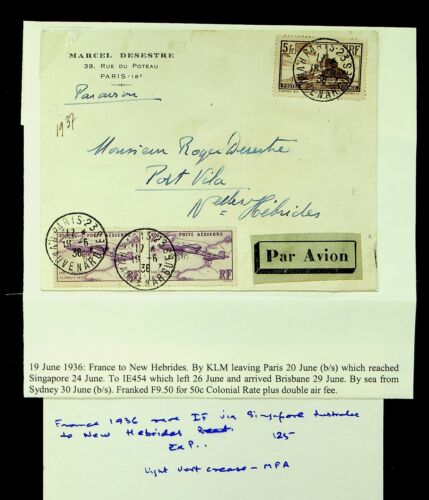 MARCEL DESESTRE
39, RUE DU POTEAU
PARIS-18ᵉ
Par avion
5f RF
POSTES
PARIS-23
R. VAUVENARGUES
1937
Monsieur Roger Desestre
Port Vila
Nelles Hébrides
PARIS-23
17
19-6
36
R. VAUVENARGUES
POSTE AÉRIENNE
RF
PARIS-23
17
19-6
36
R. VAUVENARGUES
POSTE AÉRIENNE
RF
Par Avion
19 June 1936: France to New Hebrides. By KLM leaving Paris 20 June (b/s) which reached
Singapore 24 June. To IE454 which left 26 June and arrived Brisbane 29 June. By sea from
Sydney 30 June (b/s). Franked F9.50 for 50c Colonial Rate plus double air fee.
France 1936 rare IF via Singapore Australia
to New Hebrides 125
Light Vert crease - MPA